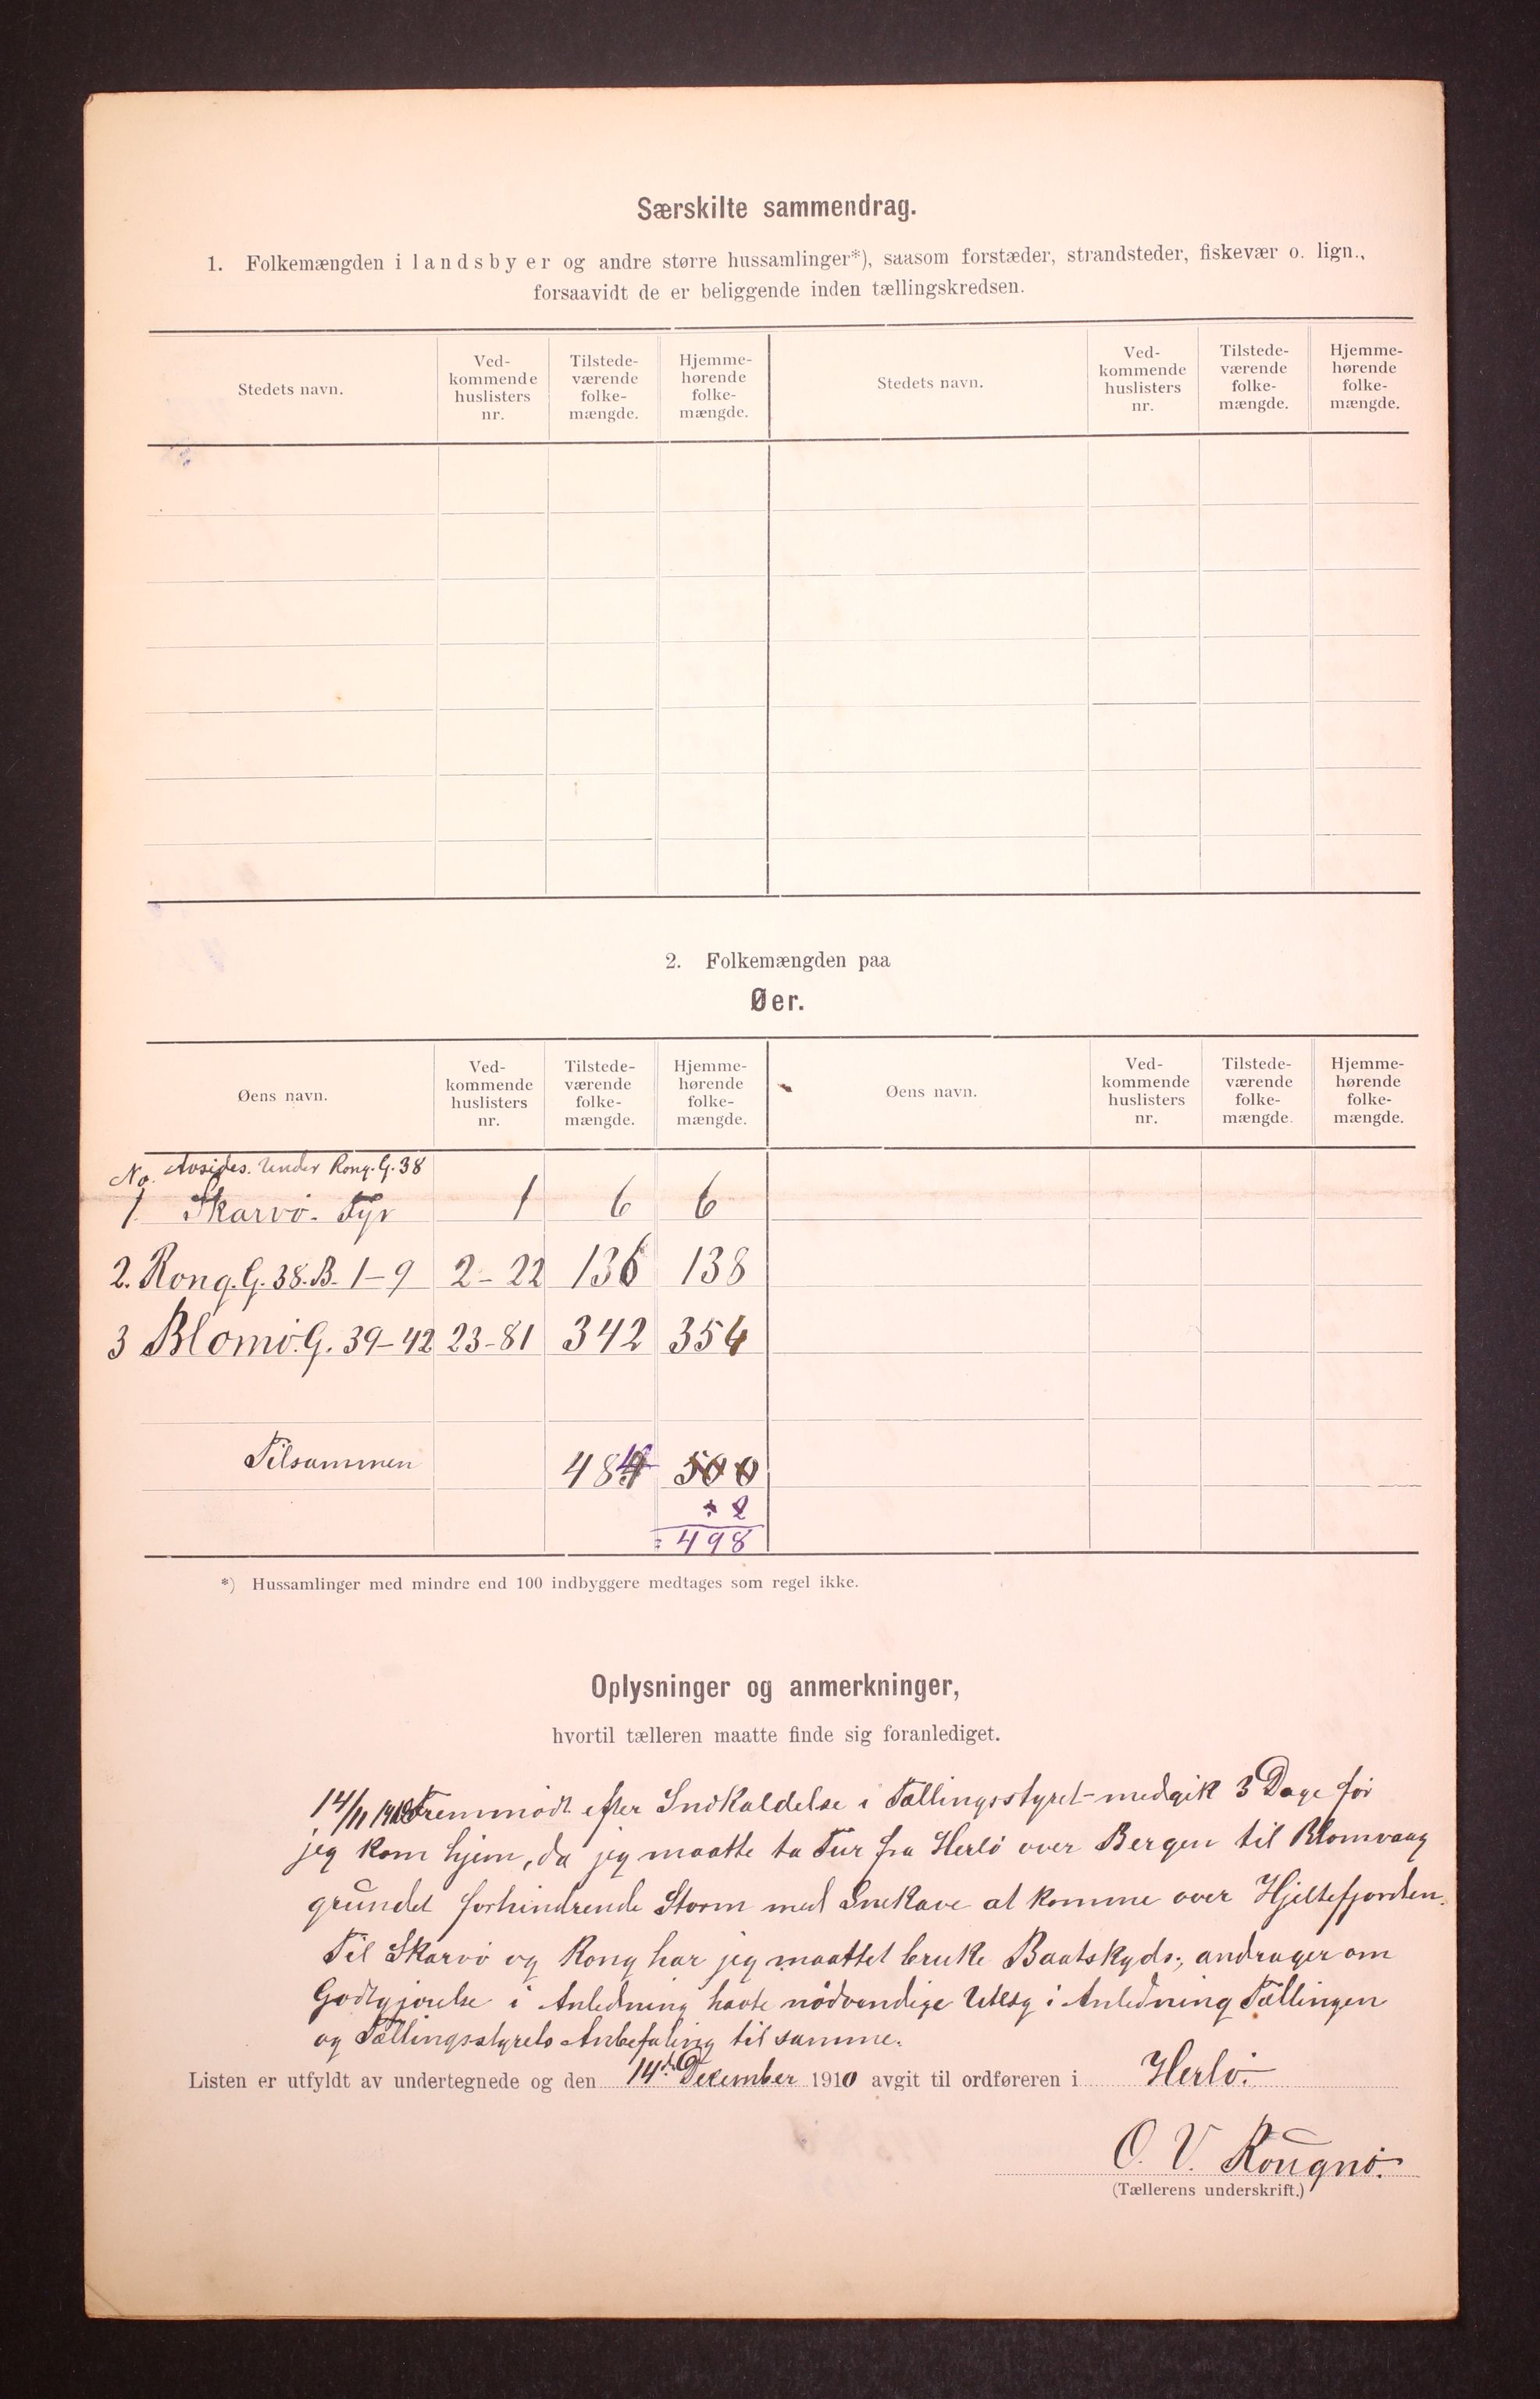 Særskilte sammendrag.
1. Folkemængden i landsbyer og andre større hussamlinger*), saasom forstæder, strandsteder, fiskevær o. lign.,
forsaavidt de er beliggende inden tællingskredsen.
Stedets navn.
Ved-
kommende
huslisters
nr.
Tilstede-
værende
folke-
mængde.
Hjemme-
hørende
folke-
mængde.
Stedets navn.
Ved-
kommende
huslisters
nr.
Tilstede-
værende
folke-
mængde.
Hjemme-
hørende
folke-
mængde.
2. Folkemængden paa
Øer.
Øens navn.
Ved-
kommende
huslisters
nr.
Tilstede-
værende
folke-
mængde.
Hjemme-
hørende
folke-
mængde.
Øens navn.
Ved-
kommende
huslisters
nr.
Tilstede-
værende
folke-
mængde.
Hjemme-
hørende
folke-
mængde.
No. Avsides. Under Rong. G. 38
1. Skarvø. Fyr 1 6 6
2. Rong. G. 38. B. 1-9 2-22 136 138
3 Blomø. G. 39-42 23-81 342 354
Tilsammen 484 500
÷ 2
= 498
*) Hussamlinger med mindre end 100 indbyggere medtages som regel ikke.
Oplysninger og anmerkninger,
hvortil tælleren maatte finde sig foranlediget.
14/11 1910 Fremmødt efter Indkaldelse i Tællingsstyret - medgik 3 Dage før
jeg kom hjem, da jeg maatte ta Tur fra Herlø over Bergen til Blomvaag
grundet forhindrende Storm med Snekave at komme over Hjeltefjorden.
Til Skarvø og Rong har jeg maattet bruke Baatskyds, andrager om
Godtgjørelse i Anledning havte nødvendige Utlæg i Anledning Tællingen
og Tællingsstyrets Anbefaling til samme.
Listen er utfyldt av undertegnede og den 14de December 1910 avgit til ordføreren i Herlø.
O. V. Rougnø.
(Tællerens underskrift.)